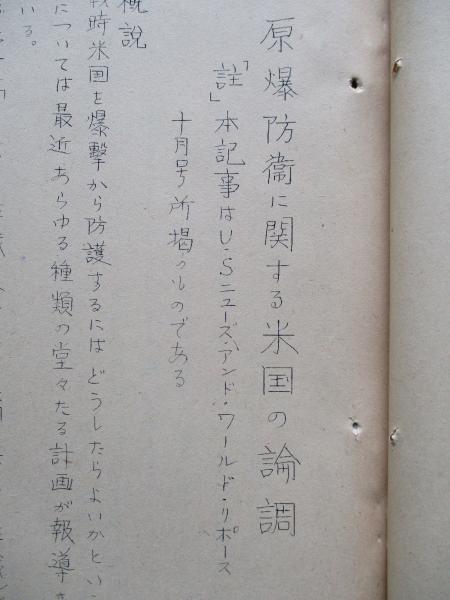 原爆防衛に関する米国の論調
「註」本記事はU・Sニューズ・アンド・ワールド・リポース
十月号所掲のものである
概説
戦時米国を爆撃から防護するにはどうしたらよいかとい
については最近あらゆる種類の堂々たる計画が報導さ
いる。